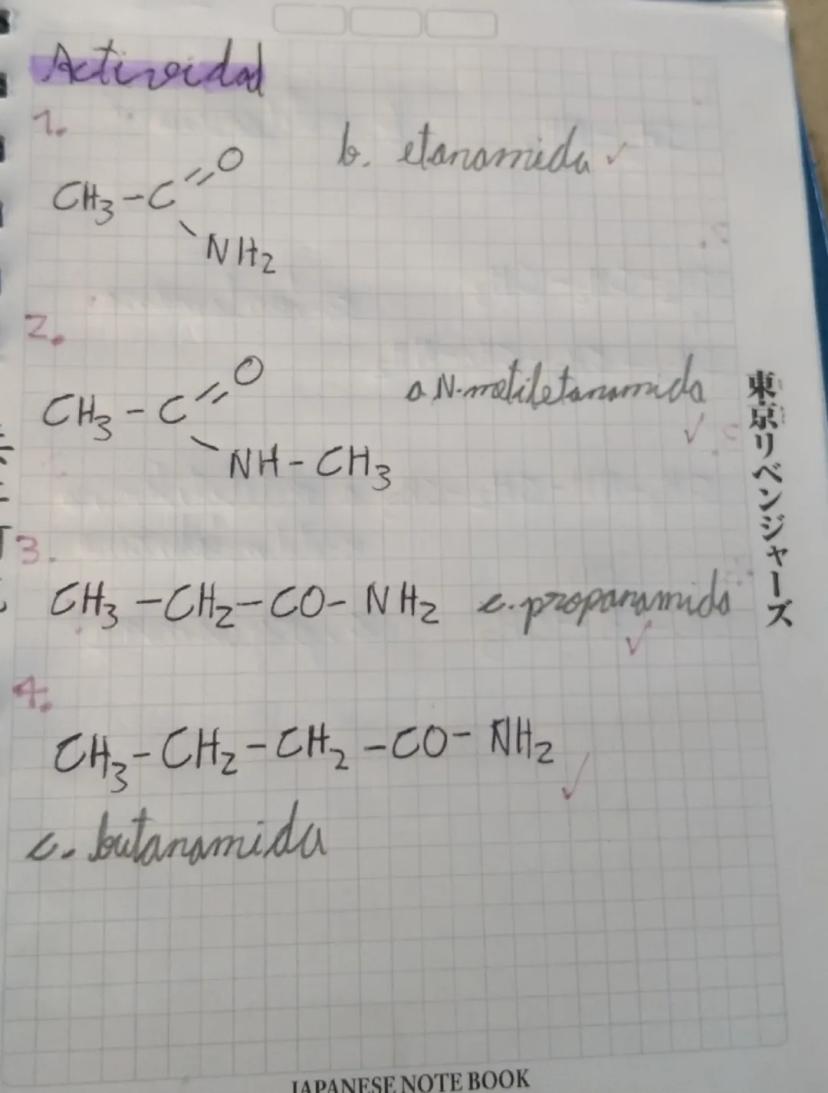 Actividad
1.
b. etanamida ✓
CH3-C=O
NH2
2.
a N-metiletanamida ✓
CH3-C=O
NH-CH3
3.
CH3-CH2-CO-NH2 c. propanamida ✓
4.
CH3-CH2-CH2-CO-NH2 ✓
c. butanamida
東京リベンジャーズ
JAPANESE NOTE BOOK